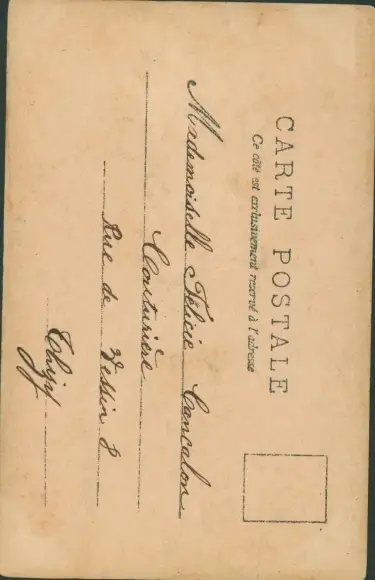 CARTE POSTALE
Ce côté est exclusivement reservé à l'adresse
Mademoiselle Félicie Cancalon
Couturière
Rue de Vessin 8
Thizy